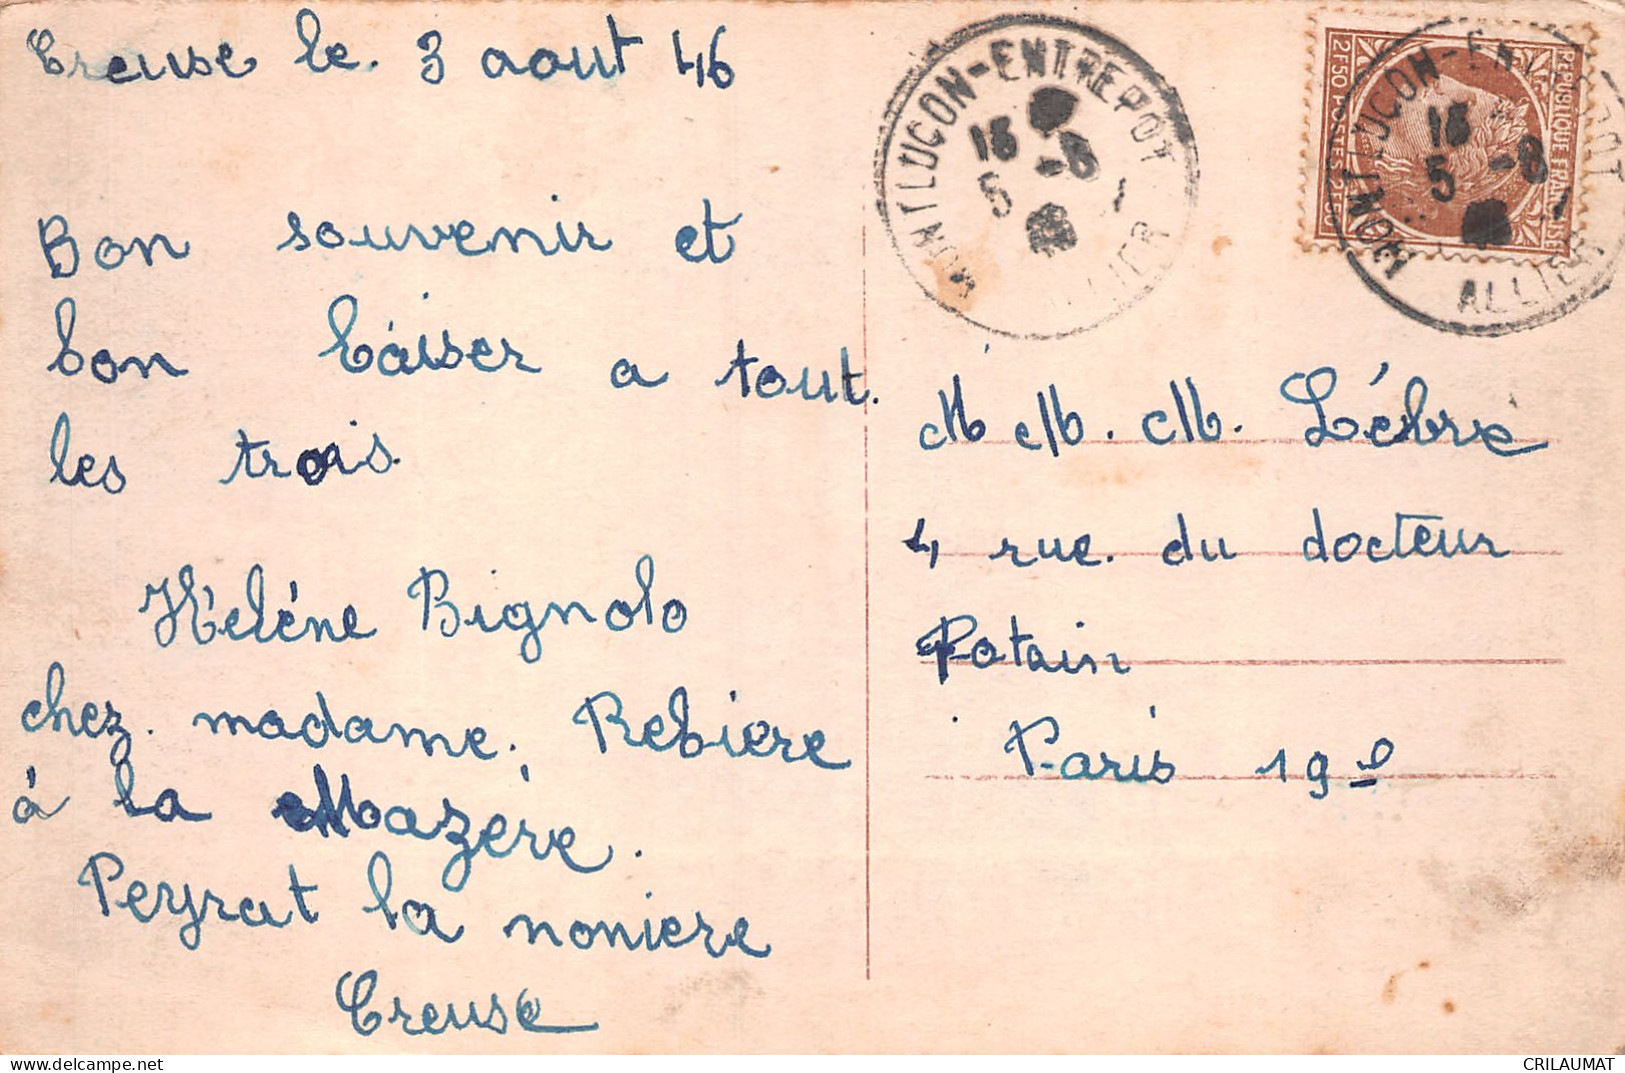 Creuse le. 3 aout 46
Bon souvenir et
bon baiser a tout.
les trois
Héléne Bignolo
chez. madame. Rebiere
à la Mazére.
Peyrat la noniere
Creuse
MONTLUCON-ENTREPOT
5 -8
ALLIER
REPUBLIQUE FRANCAISE
2F50 POSTES 2F50
MONTLUCON-ENTREPOT
5 -8
ALLIER
M M. M. Lébre
4 rue. du docteur
Potain
Paris 19e
CRILAUMAT